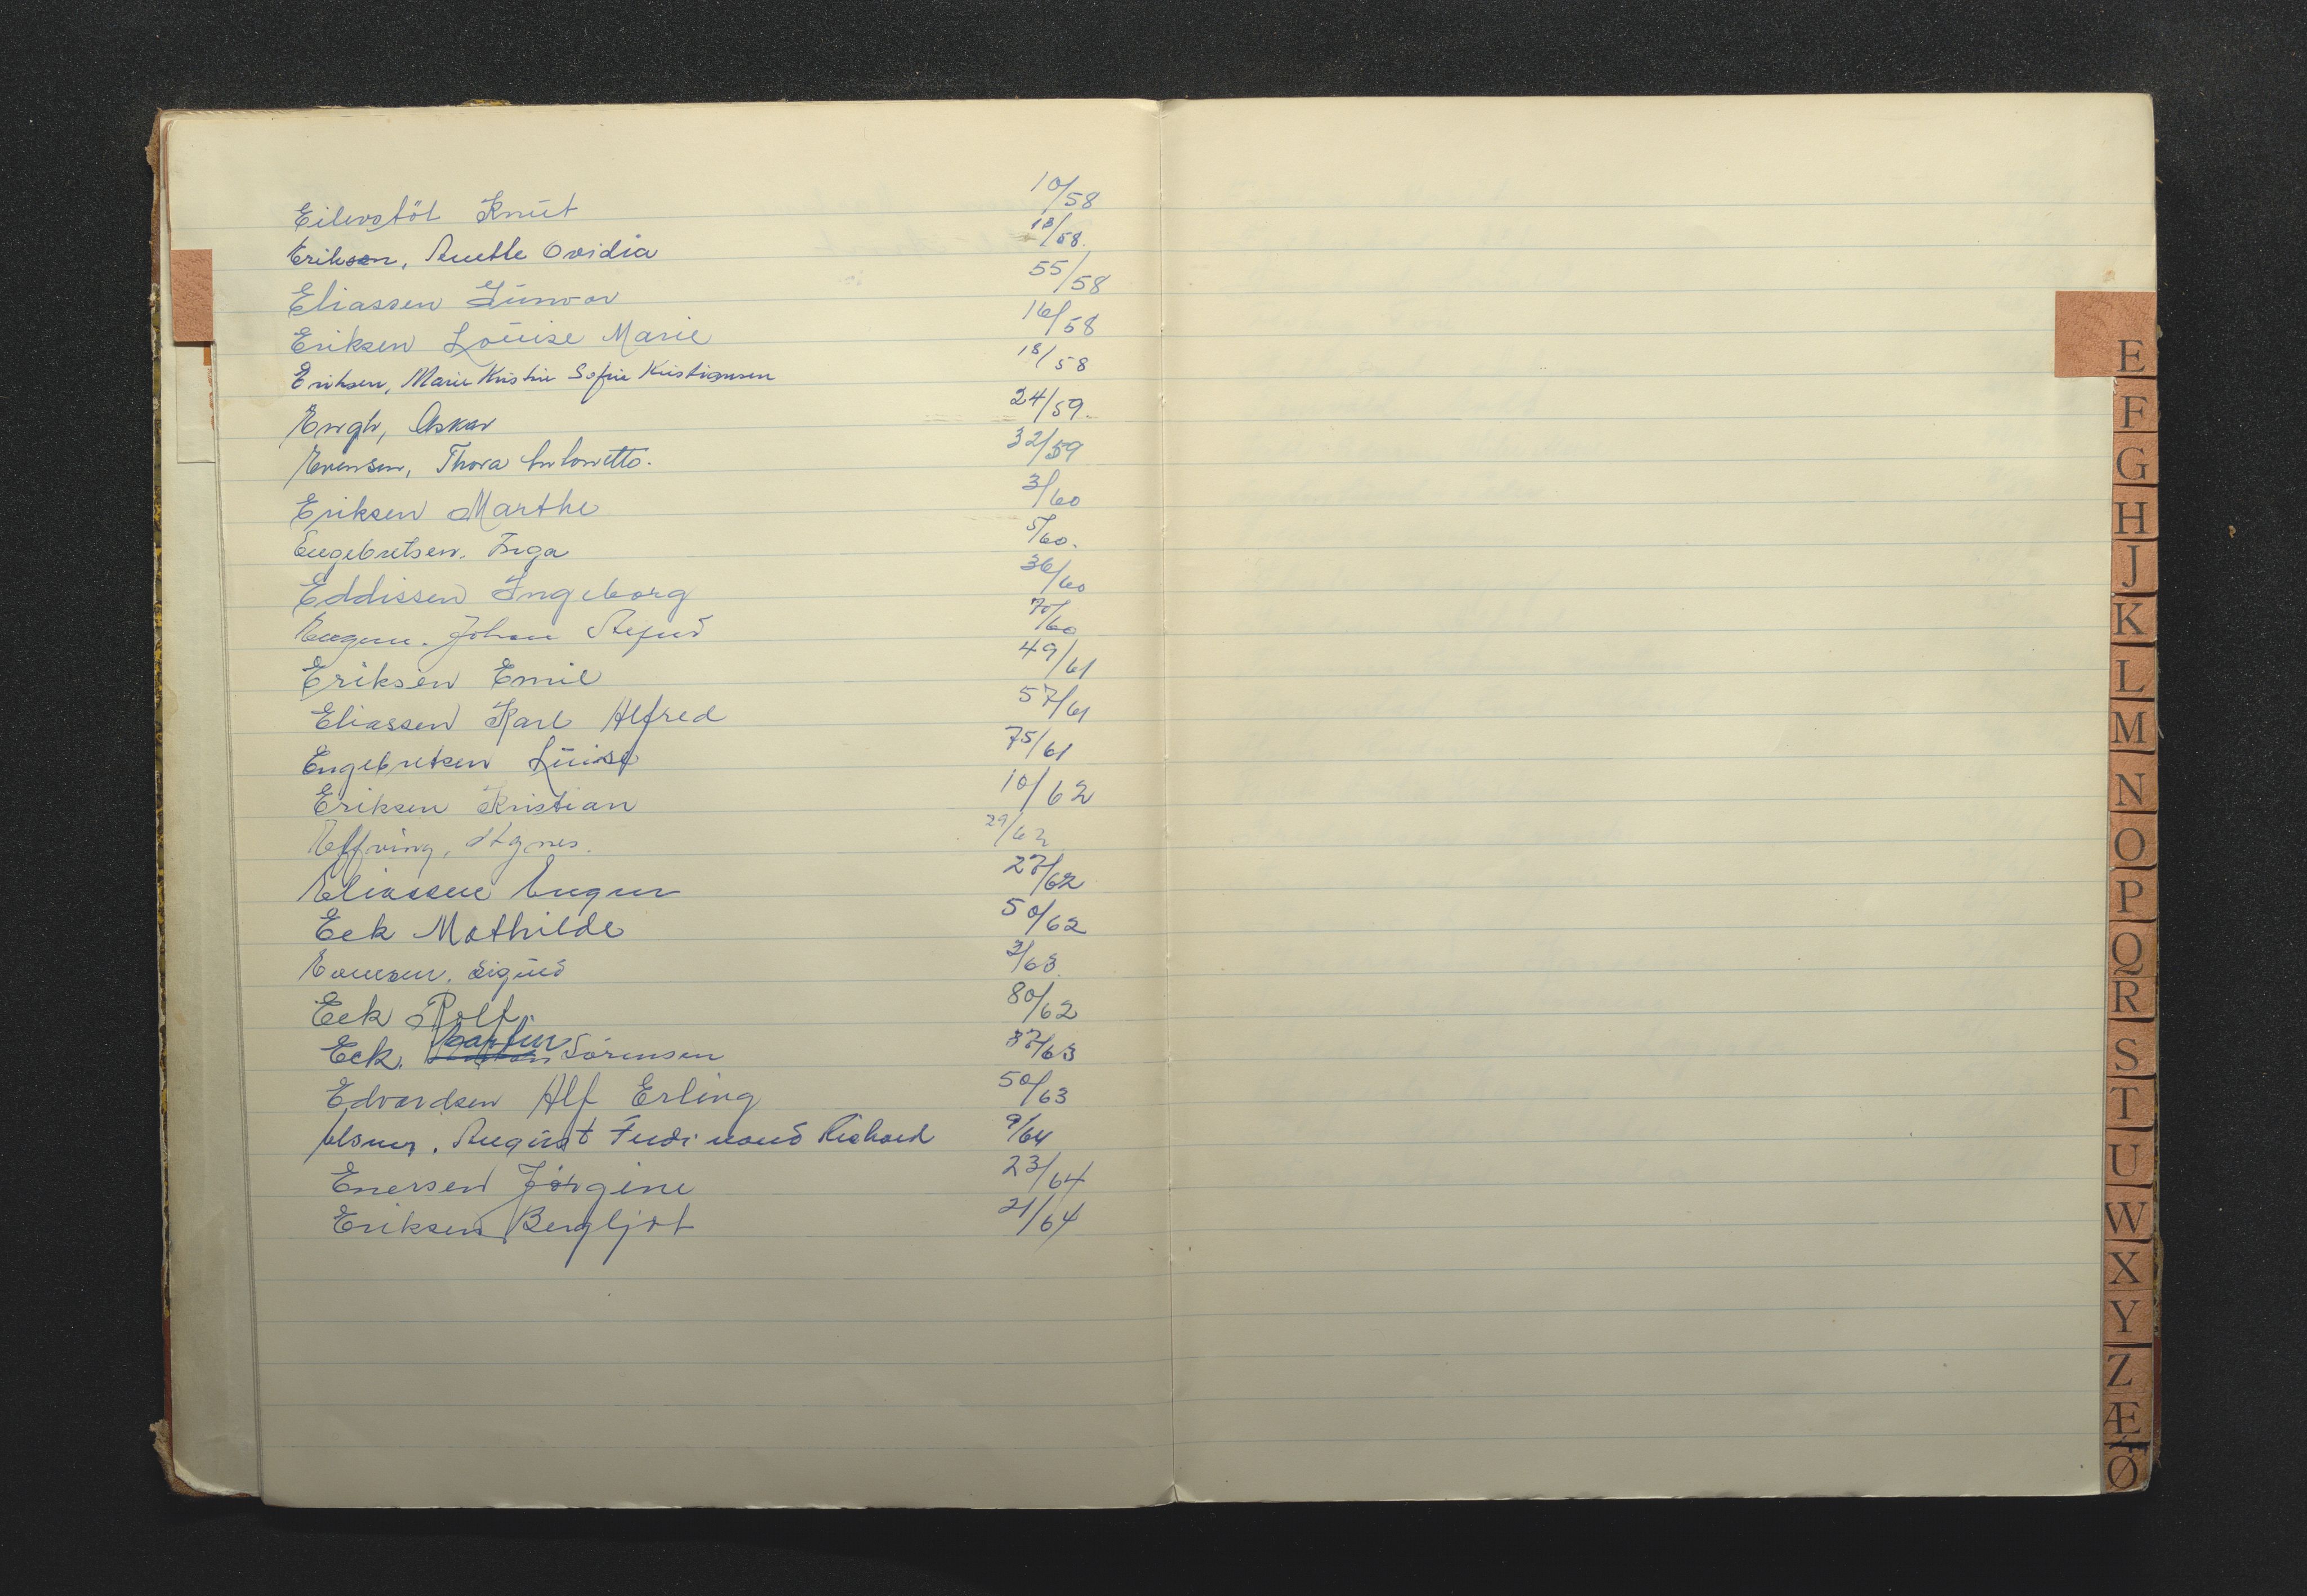 Eilevstöl Knut 10/58
Eriksen, Anette Ovidia 13/58.
Eliassen Gunvor 55/58
Eriksen Louise Marie 16/58
Eriksen, Marie Kristine Sofie Kristiansen 18/58
Engh, Oskar 24/59.
Evensen, Thora Antonette. 32/59
Eriksen Marthe 3/60
Engebretsen. Inga 5/60.
Eddissen Ingeborg 36/60
Johan 70/60
Eriksen Emil 49/61
Eliassen Karl Alfred 57/61
Engebretsen Luise 75/61
Eriksen Kristian 10/62
Agnes. 29/62
Eliassen 27/62
Eek Mathilde 50/62
Sigurd 3/63
Eek Rolf. 80/62
Eck. Sørensen 37/63
Edvardsen Alf Erling 50/63
August Ferdinand Richard 9/64
Enersen Jørgine 23/64
Eriksen Bergljot 21/64
E
F
G
H
J
K
L
M
N
O
P
Q
R
S
T
U
W
X
Y
Z
Æ
Ø